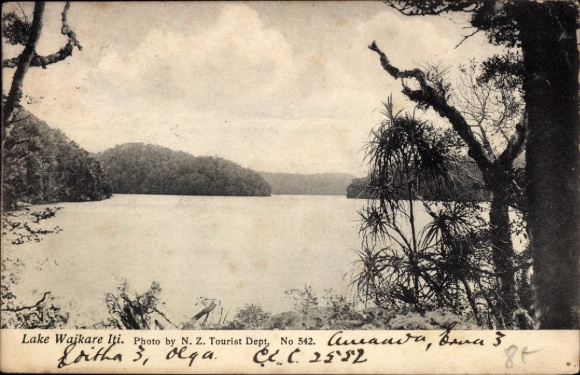 Lake Wajkare Iti. Photo by N. Z. Tourist Dept. No 542. Amanda, Erna 3
Editha 3, Olga. Cl. C. 2552